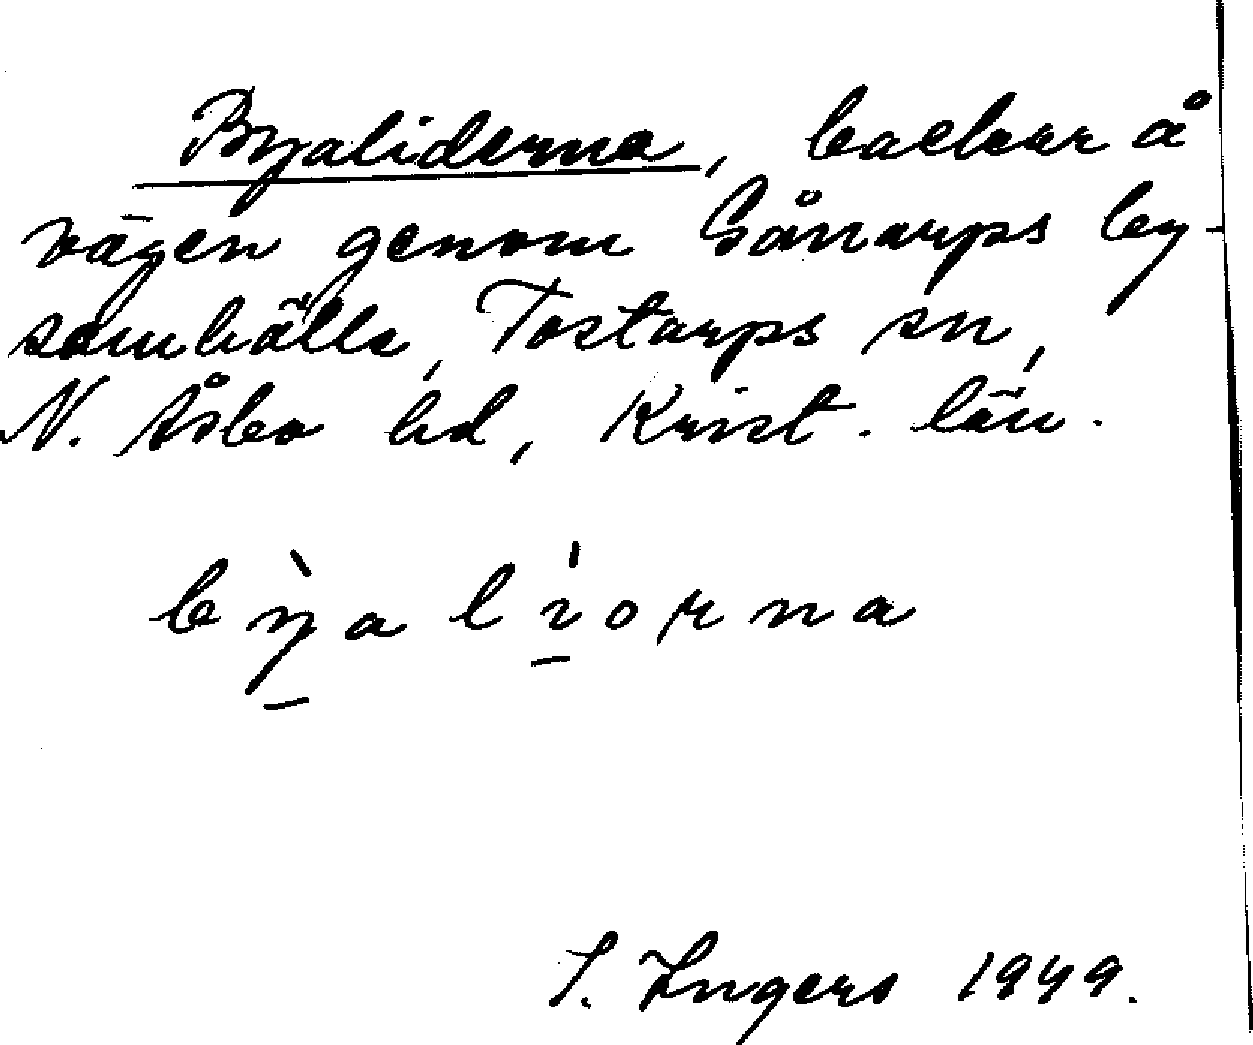 Byaliderna, backar å
vägen genom Gånarps by-
samhälle, Tostarps sn,
N. Åsbo hd, Krist. län.
bỳ̱a li̱̍orna
I. Ingers 1949.